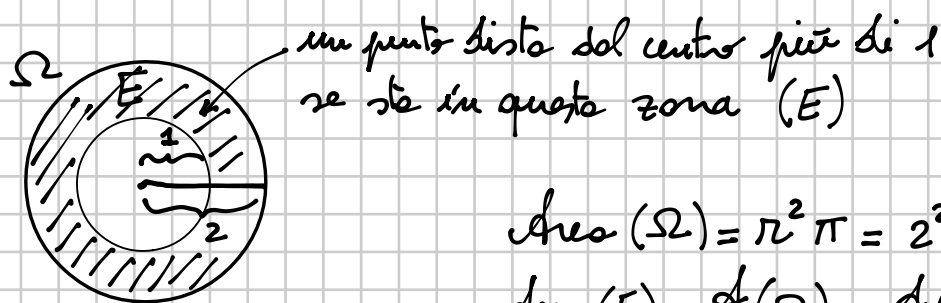 un punto dista dal centro più di 1
se sta in questa zona (E)
Ω
E
1
2
Area (Ω) = r² π = 2²